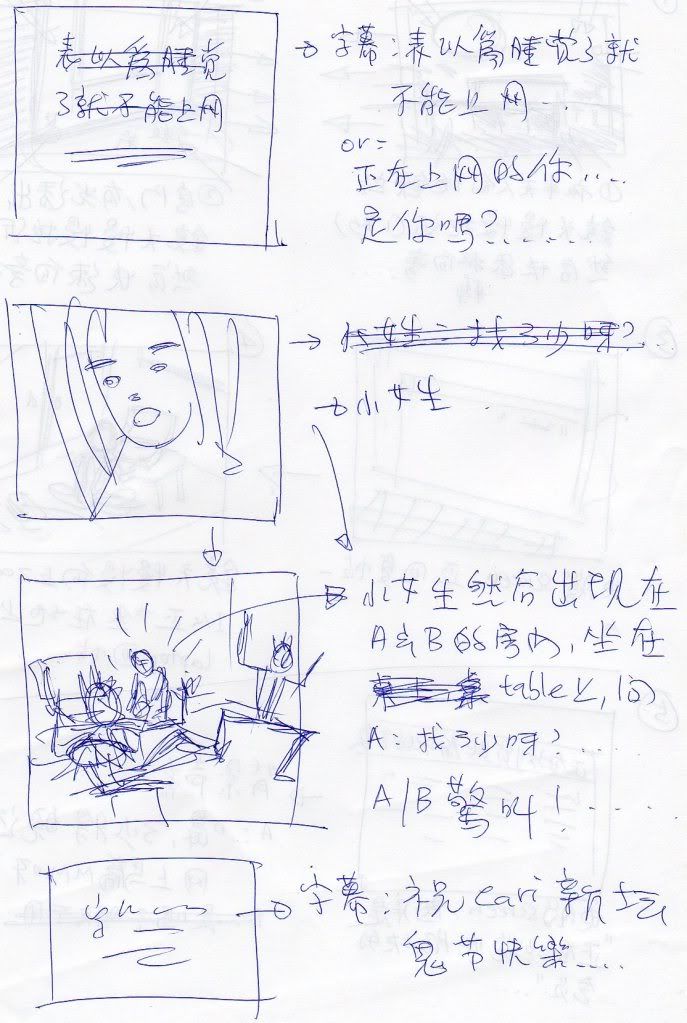 表以為睡觉
了就不能上网
字幕:表以為睡觉了就
不能上网...
or=
正在上网的你....
是你嗎?......
小女生:找3少呀?...
小女生
小女生然后出现在
A和B的房内,坐在
table上,问
A:找3少呀?....
A/B驚叫!....
字幕:祝cari新坛
鬼节快樂....